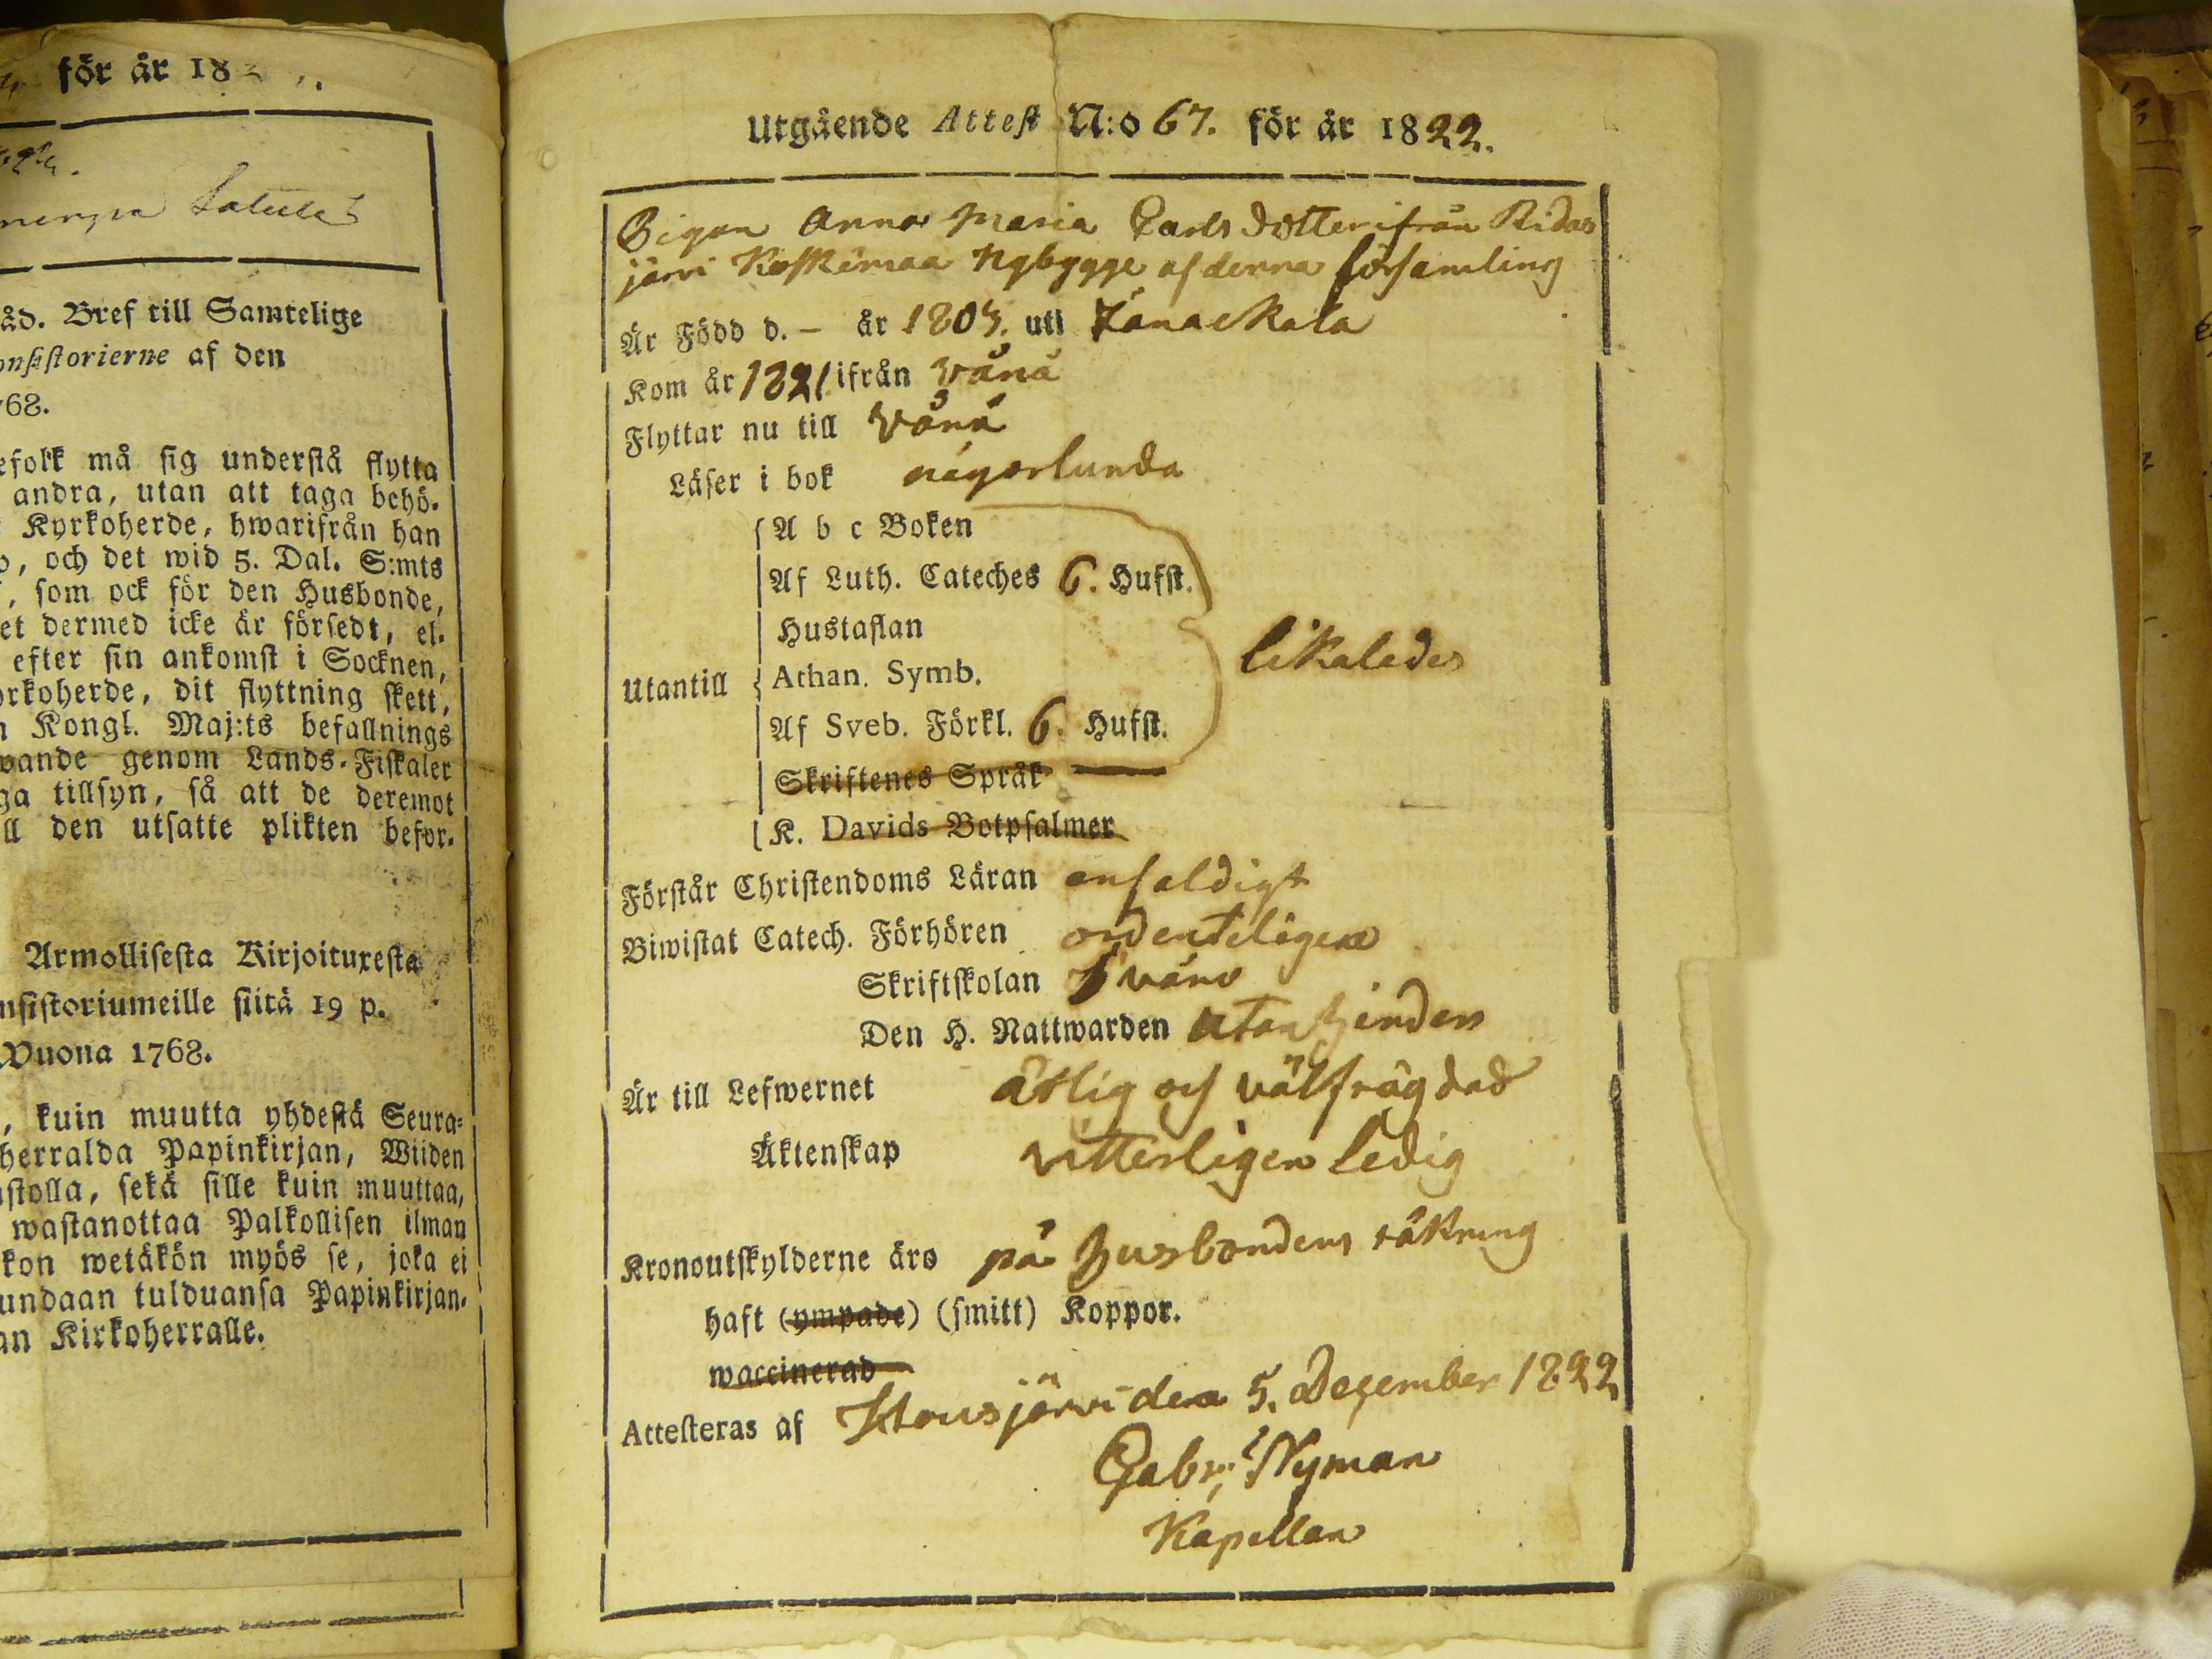 för år 18
åd. Bref till Samtelige
onsistorierne af den
768.
efolk må sig understå flytta
andra, utan att taga behö-
Kyrkoherde, hwarifrån han
o, och det wid 5. Dal. S:mts
, som ock för den Husbonde,
et dermed icke är försedt, el.
efter sin ankomst i Socknen,
orkoherde, dit flyttning skett,
Kongl. Maj:ts befallnings
wande genom Lands-Fiskaler
ga tillsyn, så att de deremot
ll den utsatte plikten befor-
Armollisesta Kirjoituxesta
nsistoriumeille siitä 19 p.
Wuona 1768.
, kuin muutta yhdestä Seura-
herralda Papinkirjan, Wiiden
stolla, sekä sille kuin muuttaa,
wastanottaa Palkollisen ilman
kon wetäkön myös se, joka ei
undaan tulduansa Papinkirjan-
an Kirkoherralle.
Utgående Attest N:o 67. för år 1822.
Pigan Anna Maria Carls dotter ifrån Ridas
järvi Koskemaa Nybygge af denna församling
Är Född d. – år 1803. uti Janackala
Kom år 1821 ifrån Vånå
Flyttar nu till Vånå
Läser i bok någorlunda
Utantill
A b c Boken
Af Luth. Cateches 6. Hufst.
Hustaflan
Athan. Symb.
Af Sveb. Förkl. 6. Hufst.
Skriftenes Språk
K. Davids Botpsalmer
likaledes
Förstår Christendoms Läran enfaldigt
Biwistat Catech. Förhören ordenteligen
Skriftskolan i Vånå
Den H. Nattwarden utan hinder
Är till Lefwernet ärlig och välfrägdad
Äktenskap vitterligen ledig
Kronoutskylderne äro på husbondens räkning
haft (ympade) (smitt) Koppor.
waccinerad
Attesteras af Hausjärvi den 5. December 1822
Gabr:l Nyman
Kapellan